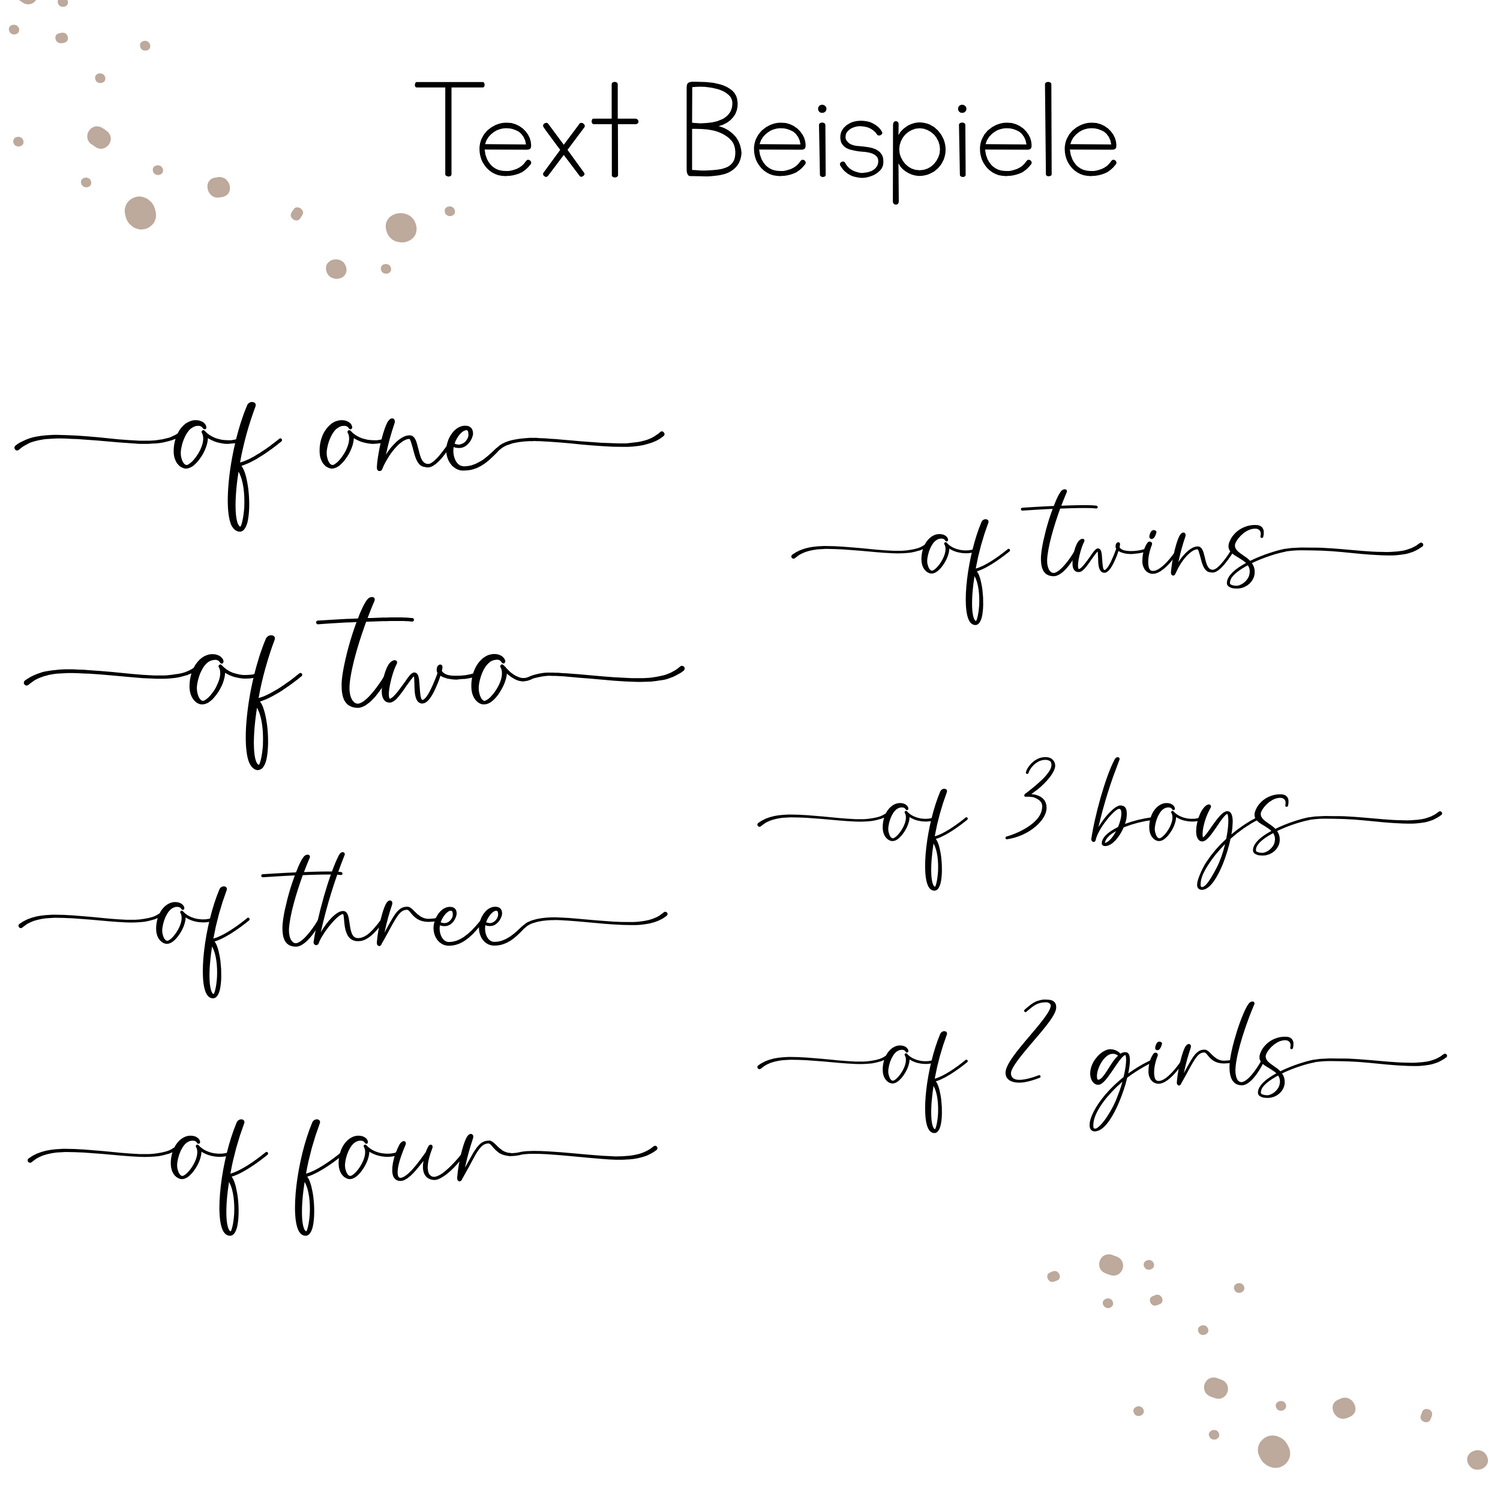 Text Beispiele
of one
of two
of three
of four
of twins
of 3 boys
of 2 girls